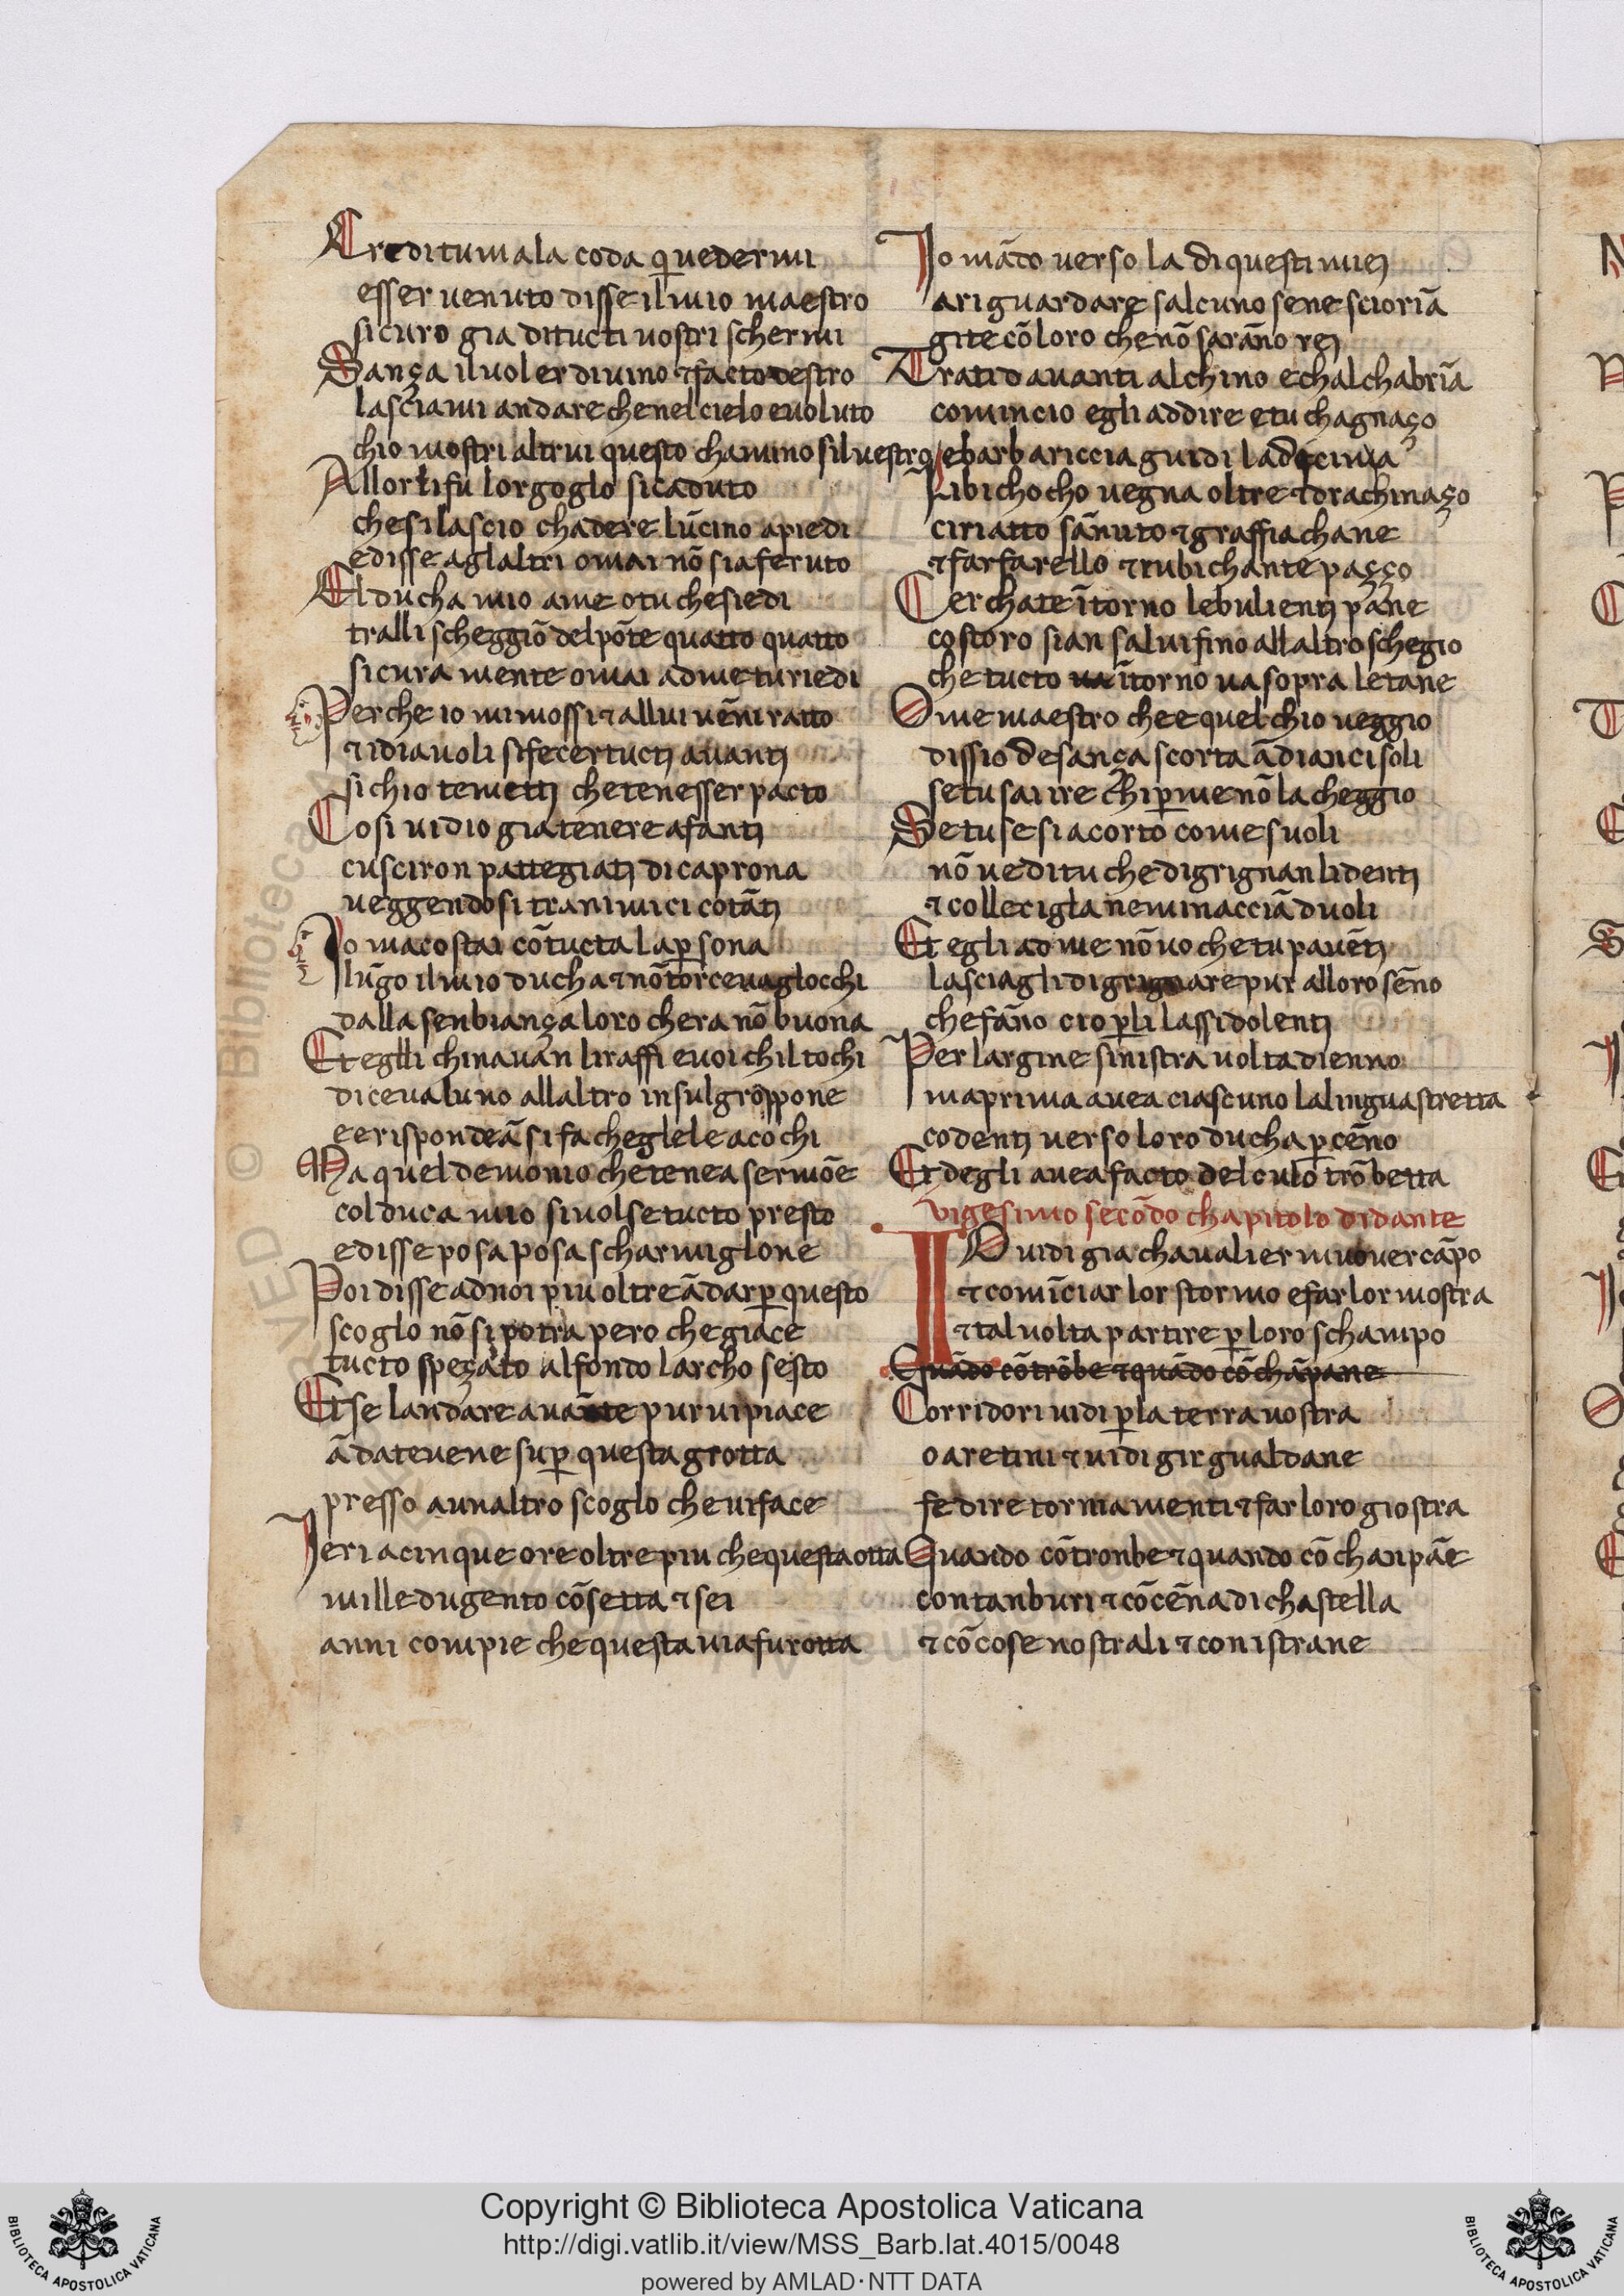 Creditu mala coda q̄ uedermi
esser uenuto disse il mio maestro
sicuro gia ditucti uostri schermi
Sança il uoler diuino ⁊ facto destro
lasciami andare che nel cielo euoluto
chio mostri altrui questo chamino siluestro
Allor li fu lorgoglo si caduto
che si lascio chadere lūcino apiedi
edisse aglaltri omai nō sia feruto
El ducha mio ame otu che siedi
tralli scheggiō del pōte quatto quatto
sicura mente omai ad me tu riedi
Perche io mi mossi ⁊ allui uēni ratto
⁊ idiauoli si fecer tuctj auantj
sichio temettj che tenesser pacto
Cosi uidio gia tenere afantj
cusciron pattegiatj di caprona
ueggendosi tra nimici cotātj
Io macostai cō tucta la ꝑsona
lūgo il mio ducha ⁊ nō torceua glocchi
dalla senbiança loro chera nō buona
Et eglli chinauan li raffi euoi chil tochi
diceua luno allaltro in sul groppone
e e rispondeā si fa che glele acochi
Ma quel demonio che tenea sermōe
col duca mio si uolse tucto presto
edisse posa posa scharmiglone
Poi disse ad noi piu oltre ādar ꝑ questo
scoglo nō si potra pero che giace
tucto speçato al fondo larcho sesto
Et se landare auante pur ui piace
ādateuene suꝑ questa grotta
presso aunaltro scoglo che uiface
Ieri a cinque ore oltre piu che questa otta
mille dugento cō setta ⁊ sei
anni compie che questa uia fu rotta
Io māto uerso la di questi miej
ariguardare salcuno sene scioriā
gite cō loro che nō sarāno rej
Trati dauanti alchino echalchabriā
comincio egli addire etu chagnaço
ebarbariccia guidi la decima
Libichocho uegna oltre ⁊ drachinaço
ciriatto sānuto ⁊ graffiachane
⁊ farfarello ⁊ rubichante paçço
Cerchate ītorno le bulientj pane
costoro sian salui fino allaltro schegio
che tucto ua ītorno ua sopra le tane
Ome maestro che e quel chio ueggio
dissio de sança scorta ādianci soli
se tu sai ire chi ꝑ me nō la cheggio
Se tu se si acorto come suoli
nō uedi tu che digrignan li dentj
⁊ colle cigla ne minacciā duoli
Et egli ad me nō uo che tu pauētj
lasciagli digrignare pur alloro sēno
che fāno cio ꝑ li lassi dolentj
Per largine sinistra uolta dienno
ma prima auea ciascuno la lingua stretta
co dentj uerso loro ducha ꝑ cēno
Et degli auea facto del culo trōbetta
vigesimo secōdo chapitolo di dante
IO uidi gia chaualier muouer cāpo
⁊ comīciar lor stormo efar lor mostra
⁊ tal uolta partire ꝑ loro schampo
Quādo cō trōbe ⁊ quādo cō chāpane
Corridori uidi ꝑ la terra uostra
o aretini ⁊ uidi gir gualdane
fedire torniamenti ⁊ far loro giostra
Quando cō tronbe ⁊ quando cō chanpāe
con tanburi ⁊ cō cēna di chastella
⁊ cō cose nostrali ⁊ con istrane
Copyright © Biblioteca Apostolica Vaticana
http://digi.vatlib.it/view/MSS_Barb.lat.4015/0048
powered by AMLAD·NTT DATA
BIBLIOTECA APOSTOLICA VATICANA
BIBLIOTECA APOSTOLICA VATICANA